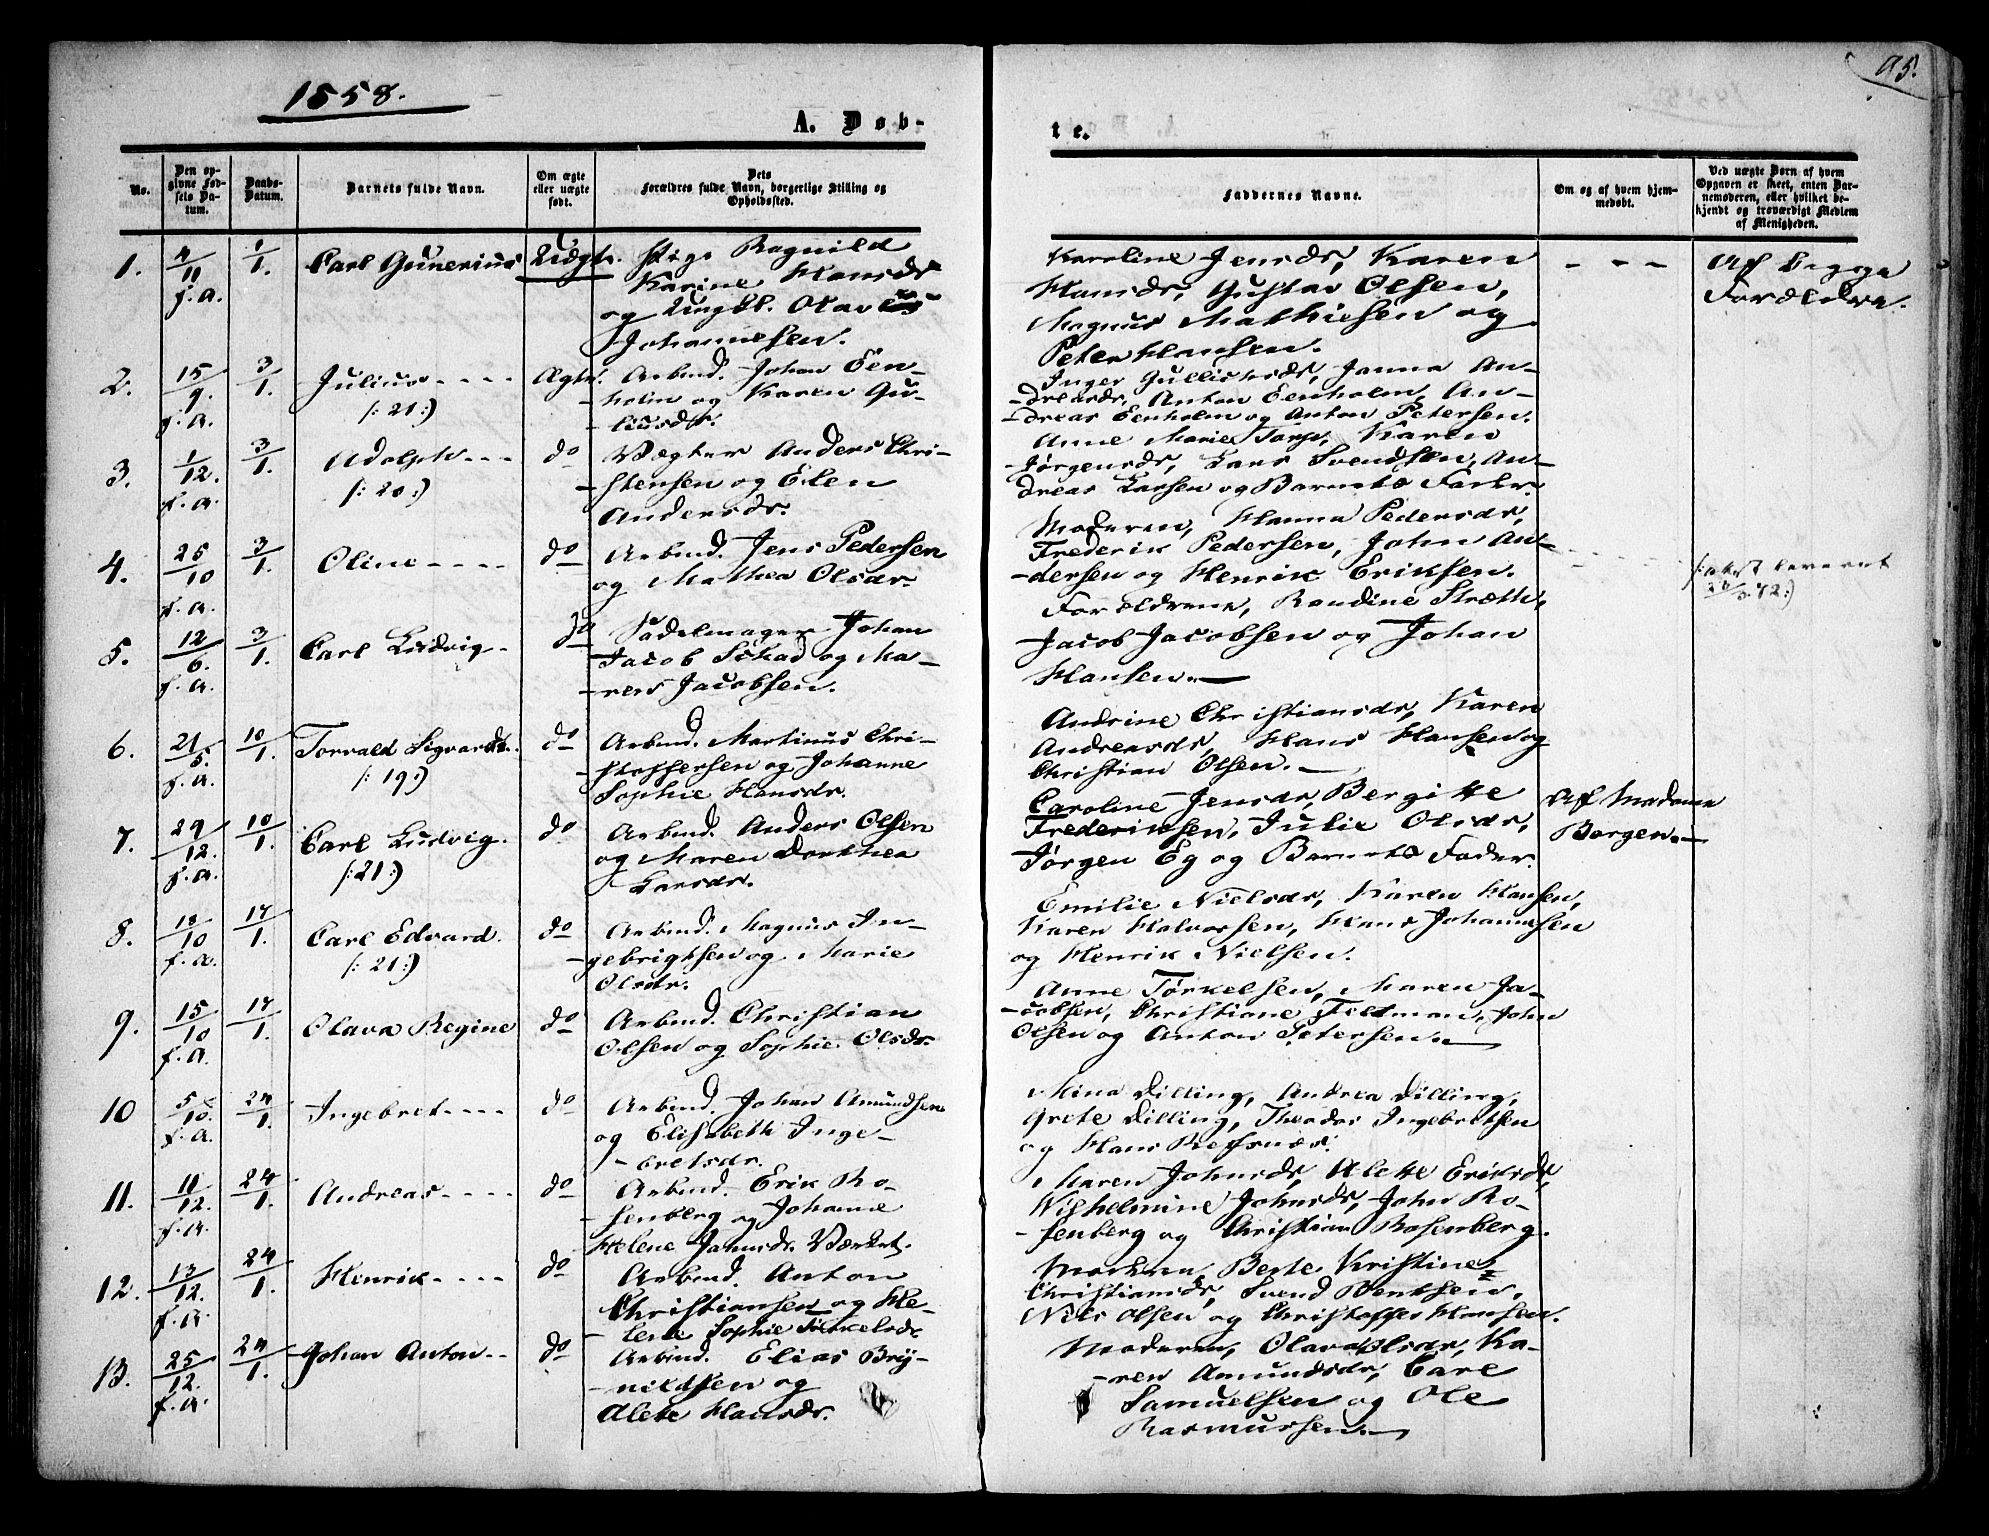 1858.
95.
A. Døb-
te.
No.
Den op-
givne Fød-
sels Da-
tum.
Daabs-
Datum.
Barnets fulde Navn.
Om ægte
eller uægte
født.
Dets
Forældres fulde Navn, borgerlige Stilling og
Opholdssted.
Faddernes Navne.
Om og af hvem hjem-
medøbt.
Ved uægte Børn af hvem
Opgaven er skeet, enten Bar-
nemoderen, eller hvilket be-
kjendt og troværdigt Medlem
af Menigheden.
1.
4/11
f. a.
1/1.
Carl Gunerius
Uægte.
Pige Ragnild
Karine Hansdr
og Ungkl. Olavus
Johannesen.
Karoline Jensdr, Karen
Hansdr, Gustav Olsen,
Magnus Mathiesen og
Peter Hansen.
- - -
Af begge
Forældre.
2.
15/9.
f. a.
3/1.
Julius - - - -
/: 21:)
Ægte.
Arbmd. Johan Een-
holm og Karen Gu-
liusdr.
Inger Gullichsdr, Janna An-
dreasdr, Anton Eenholm, An-
dreas Eenholm og Anton Petersen.
3.
1/12.
f. a.
3/1.
Adolph - - -
/: 20:)
do
Vægter Anders Chri-
stensen og Elen
Andersdr.
Anne Marie Torp, Karen
Jørgensdr, Lars Svendsen, An-
dreas Larsen og Barnets Fader.
4.
25/10
f. a.
3/1.
Oline - - - -
do
Arbmd. Jens Pedersen
og Mathea Olsdr.
Moderen, Hanna Pedersdr,
Frederik Pedersen, John An-
dersen og Henrik Eriksen.
/: atest leveret
72:)
5.
12/6.
f. a.
3/1.
Carl Ludvig -
do
Sadelmager Johan
Jacob Schad og Ma-
ren Jacobsen.
Forældrene, Randine Stræthe,
Jacob Jacobsen og Johan
Hansen. —
6.
21/5.
f. a.
10/1.
Torvald Sigvardt.
/: 19:)
do
Arbmd. Martinus Chri-
stoffersen og Johanne
Sophie Hansdr.
Andrine Christiansdr, Karen
Andreasdr, Hans Hansen og
Christian Olsen. —
7.
29/12.
f. a.
10/1.
Carl Ludvig.
/:21:)
do
Arbmd. Anders Olsen
og Maren Dorthea
Larsdr.
Caroline Jensdr, Bergitte
Frederiksen, Julie Olsdr,
Jørgen Eg og Barnets Fader.
Af Madame
Borgen. —
8.
18/10
f. a.
17/1.
Carl Edvard.
/: 21:)
do
Arbmd. Magnus In-
gebrigtsen og Marie
Olsdr.
Emilie Nielsdr, Karen Hansen,
Karen Halvorsen, Hans Johannesen
og Henrik Nielsen.
9.
15/10
f. a.
17/1.
Olava Regine
do
Arbmd. Christian
Olsen og Sophie Olsdr.
Anne Torkelsen, Maren Ja-
cobsen, Christiane Feltman, John
Olsen og Anton Petersen. —
10
5/10.
f. a.
24/1.
Ingebret - - - -
do
Arbmd. Johan Amundsen
og Elisabeth Inge-
bretsdr.
Mina Dilling, Andrea Dilling,
Grete Dilling, Theodor Ingebretsen
og Hans Refsnæs.
11.
11/12.
f. a.
24/1.
Andreas - - - -
do
Arbmd. Erik Ro-
senberg og Johanne
Helene Johnsdr. Værket.
Maren Johnsdr, Alette Eriksdr,
Wilhelmine Johnsdr, John Ro-
senberg og Christian Rosenberg.
12.
13/12.
f. a.
24/1.
Henrik - - - -
do
Arbmd. Anton
Christiansen og He-
lene Sophie Torkelsdr
Moderen Berte Kristine
Christiansdr, Svend Bentsen,
Nils Olsen og Christoffer Hansen.
13.
25/12.
f. a.
24/1.
Johan Anton - -
do
Arbmd. Elias Bry-
nildsen og
Alette Hansdr.
Moderen, Olava Olsdr, Ka-
ren Amundsdr, Carl
Samuelsen og Ole
Rasmussen. —